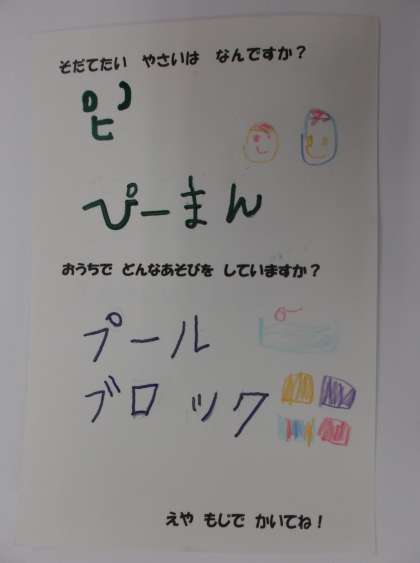 そだてたい やさいは なんですか？
ぴーまん
おうちで どんなあそびを していますか？
プール
ブロック
えや もじで かいてね！